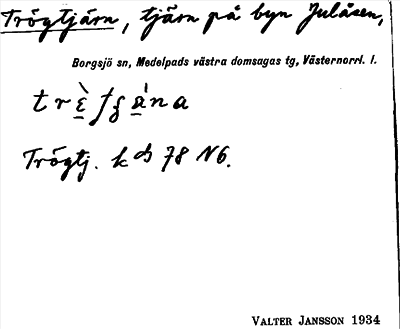 Trögtjärn, tjärn på byn Julåsen,
Borgsjö sn, Medelpads västra domsagas tg, Västernorrl. l.
Trögtj. k d 78 N6.
VALTER JANSSON 1934